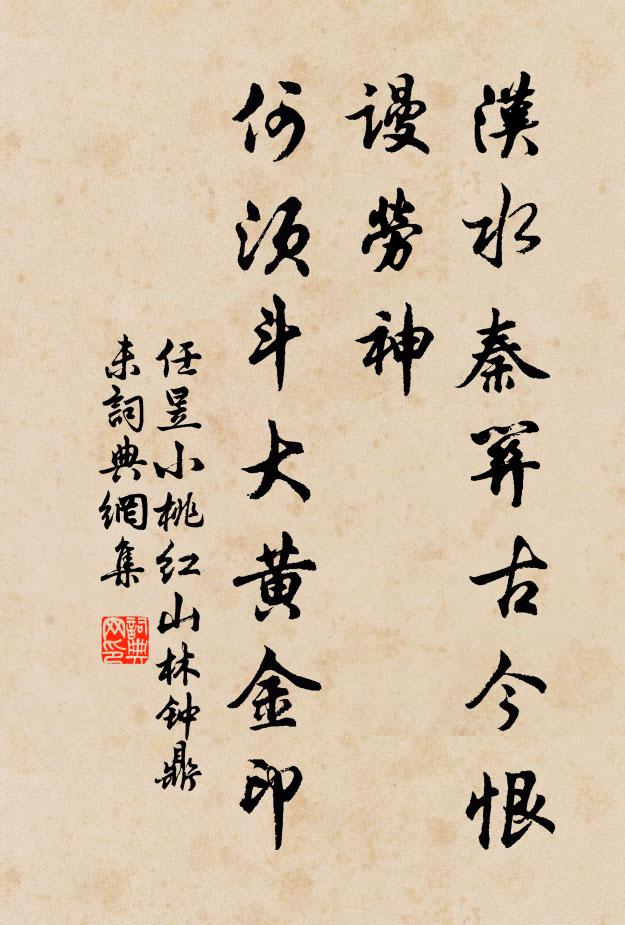 漢水秦關古今恨
謾勞神
何須斗大黄金印
任昱小桃红山林钟鼎
未詞典網集
詞典网印